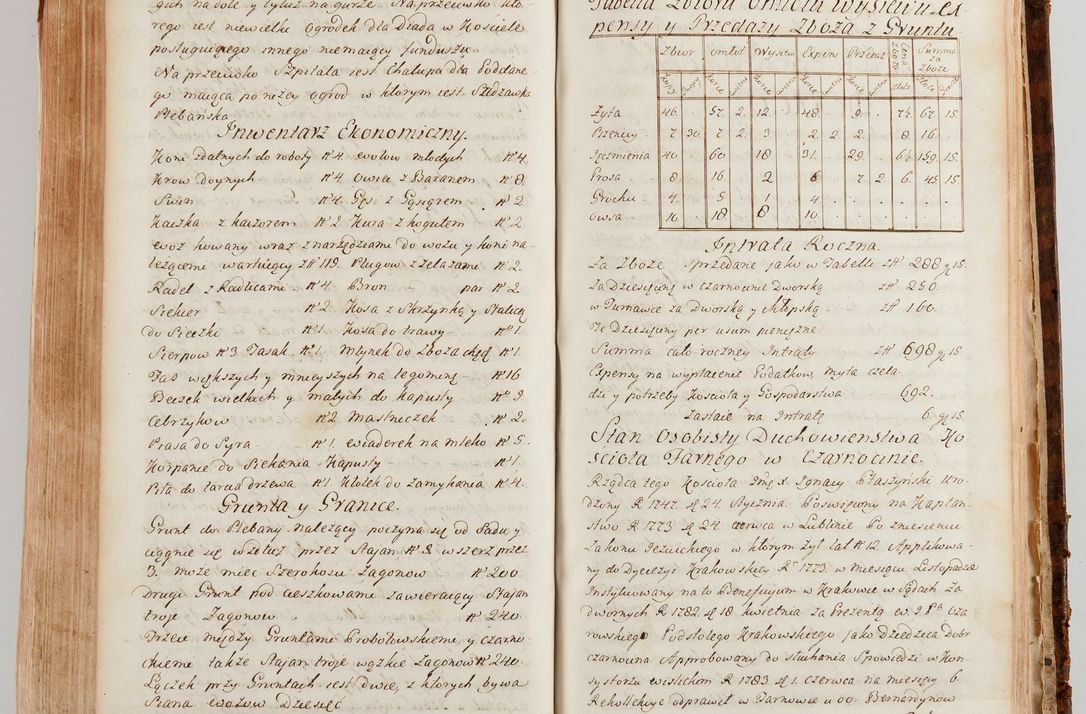 gich na dole y tyluz na gurze. Naprzeciwko kto-
rego iest niewielki ogrodek dla Dziada w Kosciele
posługuiącego innego niemaiący funduszu.
Na przeciwko Szpitala iest Chałupa dla Poddane-
go maiąca poniżey ogrod w ktorym iest Sadzawka
Plebańska.
Inwentarz Ekonomiczny.
Koni zdatnych do roboty N 4. wołow młodych N 4.
Krow doynych N 4. owiec z Baranem N 8.
Swin N 4. Gęsi z Gąsiorem N 2
Kaczka z kaczorem N 2 Kura z kogutem N 2
woz kowany wraz z narzędziami do wozu y koni na-
leżącemi wartuiący zł 119. Pługow z żelazami N 2.
Radeł z Radlicami N 4. Bron par N 2
Siekier N 2. Kosa z Skrzynką y Stalicą
do Sieczki N 1. Kosa do trawy N 1.
Sierpow N 3 Tasak N 1. Młynek do Zboża chęd. N 1.
Fas większych y mnieyszych na legominę N 16
Beczek wielkich y małych do kapusty N 9.
Cebrzykow N 2 Maśniczek N 2.
Prasa do Syra N 1. wiaderek na mleko N 5.
Korpanie do Siekania Kapusty N 1.
Piła do tarcia drzewa N 1. Kłotek do zamykania N 4.
Grunta y Granice.
Grunt do Plebany należący poczyna się od Sadu, y
ciągnie się wzdłuż przez Staian N 8 wszerz przez
3. może mieć Szerokosci Zagonow N 200.
Drugi Grunt pod Cieszkowami zawieraiący Staian
troie Zagonow N 240.
Trzeci między Gruntami Probołowskiemi, y czarno-
ckiemi także Staian troie wązkie Zagonow N 240.
Łączek przy Gruntach iest dwie, z ktorych bywa
Siana wozow Dziesięć
Tabella Zbioru Omłotu Wysiewu Ex-
pensy y Przedaży Zboża z Gruntu
Zbior Omłot Wysiew Expens Przedaż Cena Zboża Summa za Zboże
Kopy Snopy Korce cwierci Korce cwierci Korce cwierci Korce cwierci Złote Złote Grosze
Żyta 46. . 57. 2. 12. . 48. . 9. . 7½ 67. 15
Przenicy . 7. 30 7. 2. 3. . 2. 2. 2. . 8. 16.
Jęczmienia 40. . 60. . 18. . 31. . 29. . 6½ 159. 15.
Prosa 8 . 16. . 2 . 6. . 7. 2 6. 45 15
Grochu 4. . 5. . 1. . 4
owsa 10. . 18. . 8. . 10.
Intrata Roczna.
Za Zboże sprzedane jako w Tabelli zł 288 g 15.
Za Dziesięcinę w czarnocinie Dworską zł 250.
w Turnawie za Dworską y chłopską zł 160.
Te Dziesięciny per usum pieniężne
Summa cało roczney Intraty zł 698 g 15
Expensy na wypłacenie Podatkow, myta czela-
dzi y potrzeby Kościoła y Gospodarstwa 692.
Zostaie na Intratę 6. g 15.
Stan Osobisty Duchowienstwa Ko-
scioła Farnego w Czarnocinie.
Rządca tego Kościoła Jmć X Ignacy Płaszyński uro-
dzony R 1747. d 24. Stycznia. Poswięcony na Kapłań-
stwo R 1773 d 24 czerwca w Lublinie. Po zniesieniu
Zakonu Jezuickiego w ktorym żył lat N 12. Applikowa-
ny do Dyecezyi Krakowskiey Rº 1773. w miesiącu Listopadzie
Instytuowany na to Beneficyum w Krakowie w Sądach Za-
dwornych R 1782. d 18 kwietnia za Prezentą Cza-
rowskiego Podstolego Krakowskiego jako Dziedzica Dobr
czarnocina Approbowany do słuchania Spowiedzi w Kon-
systorzu wislickim R 1783 d 1. czerwca na miesięcy 6.
Rekollekcye odprawił w Tarnowie u OO. Bernardynow